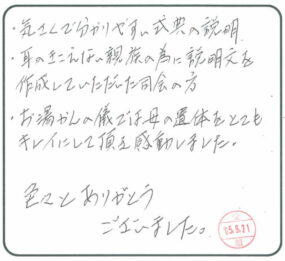 ・気さくで分かりやすい式典の説明
・耳のきこえない親族の為に説明文を
作成していただいた司会の方
・お湯かんの儀では母の遺体をとても
キレイにして頂き感動しました。
色々とありがとう
ございました。
15.5.21